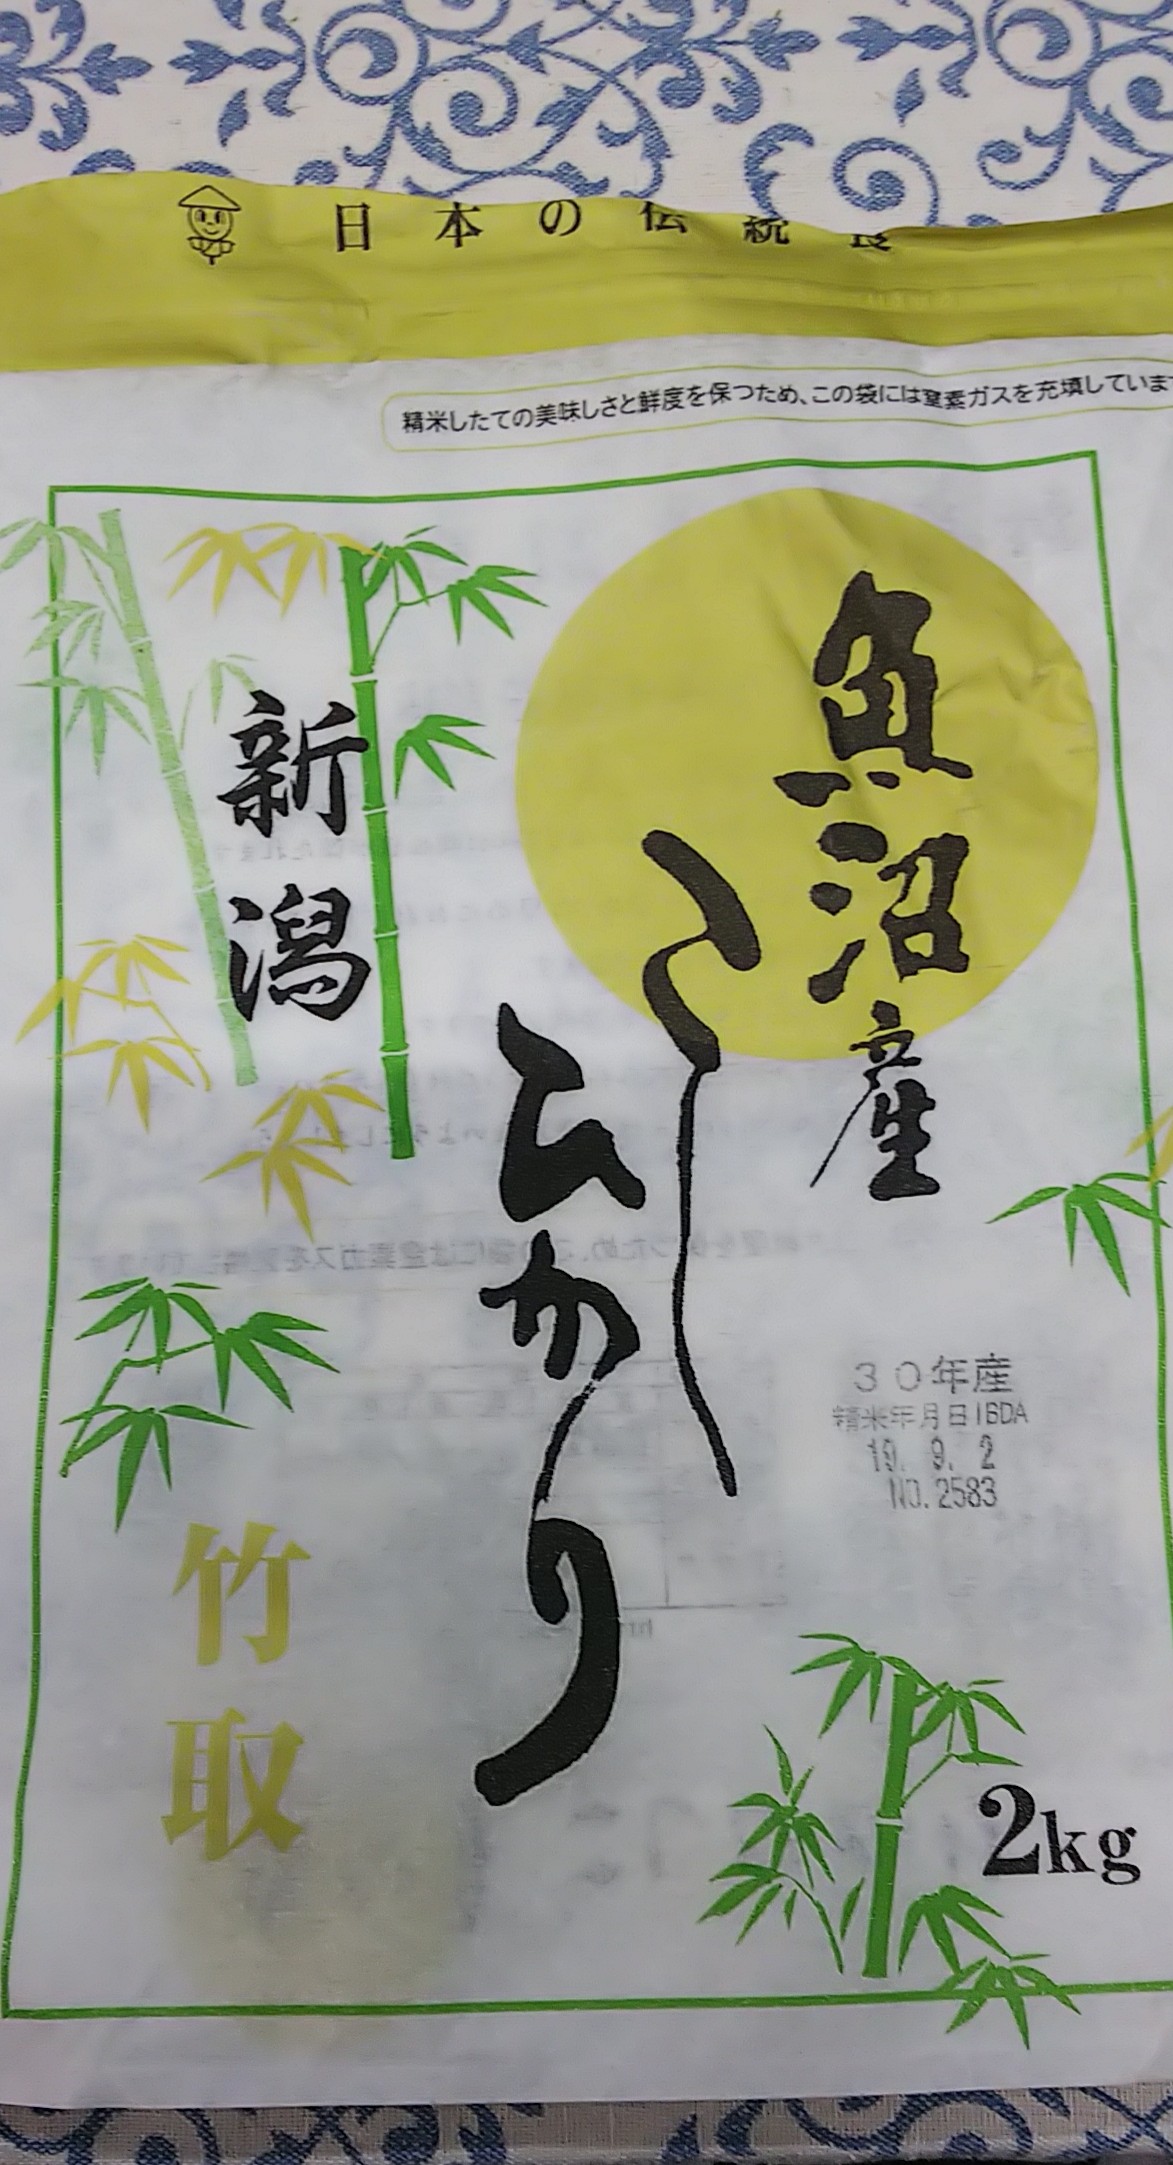 日本の伝統食
精米したての美味しさと鮮度を保つため、この袋には窒素ガスを充填していま
魚沼産
こしひかり
新潟
竹取
30年産
精米年月日16DA
19. 9. 2
NO.2583
2kg